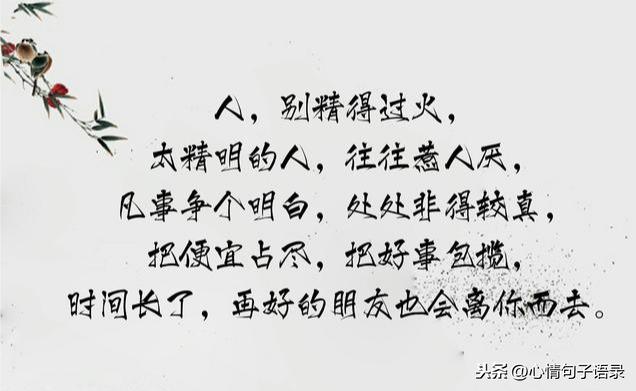 人，别精得过火，
太精明的人，往往惹人厌，
凡事争个明白，处处非得较真，
把便宜占尽，把好事包揽，
时间长了，再好的朋友也会离你而去。
头条@心情句子语录